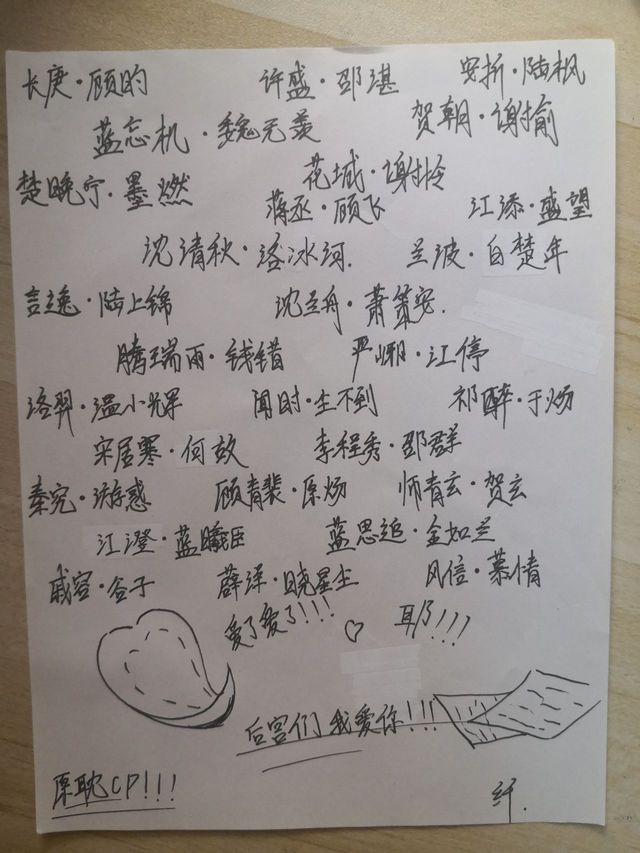 长庚·顾昀 许盛·邵湛 安折·陆枫
蓝忘机·魏无羡 贺朝·谢揄
花城·谢怜
楚晚宁·墨燃 蒋丞·顾飞 江添·盛望
沈清秋·洛冰河. 兰波·白楚年
言逸·陆上锦 沈兰舟·萧策安.
腾瑞雨·钱错 严峫·江停
洛羿·温小辉 闻时·尘不到 祁醉·于炀
宋居寒·何故 李程秀·邵群
秦究·游惑 顾青裴·原炀 师青玄·贺玄
江澄·蓝曦臣 蓝思追·金如兰
戚容·谷子 薛洋·晓星尘 风信·慕情
爱了爱了!!! 耶!!!
后宫们我爱你!!!
原耽CP!!! 纤.